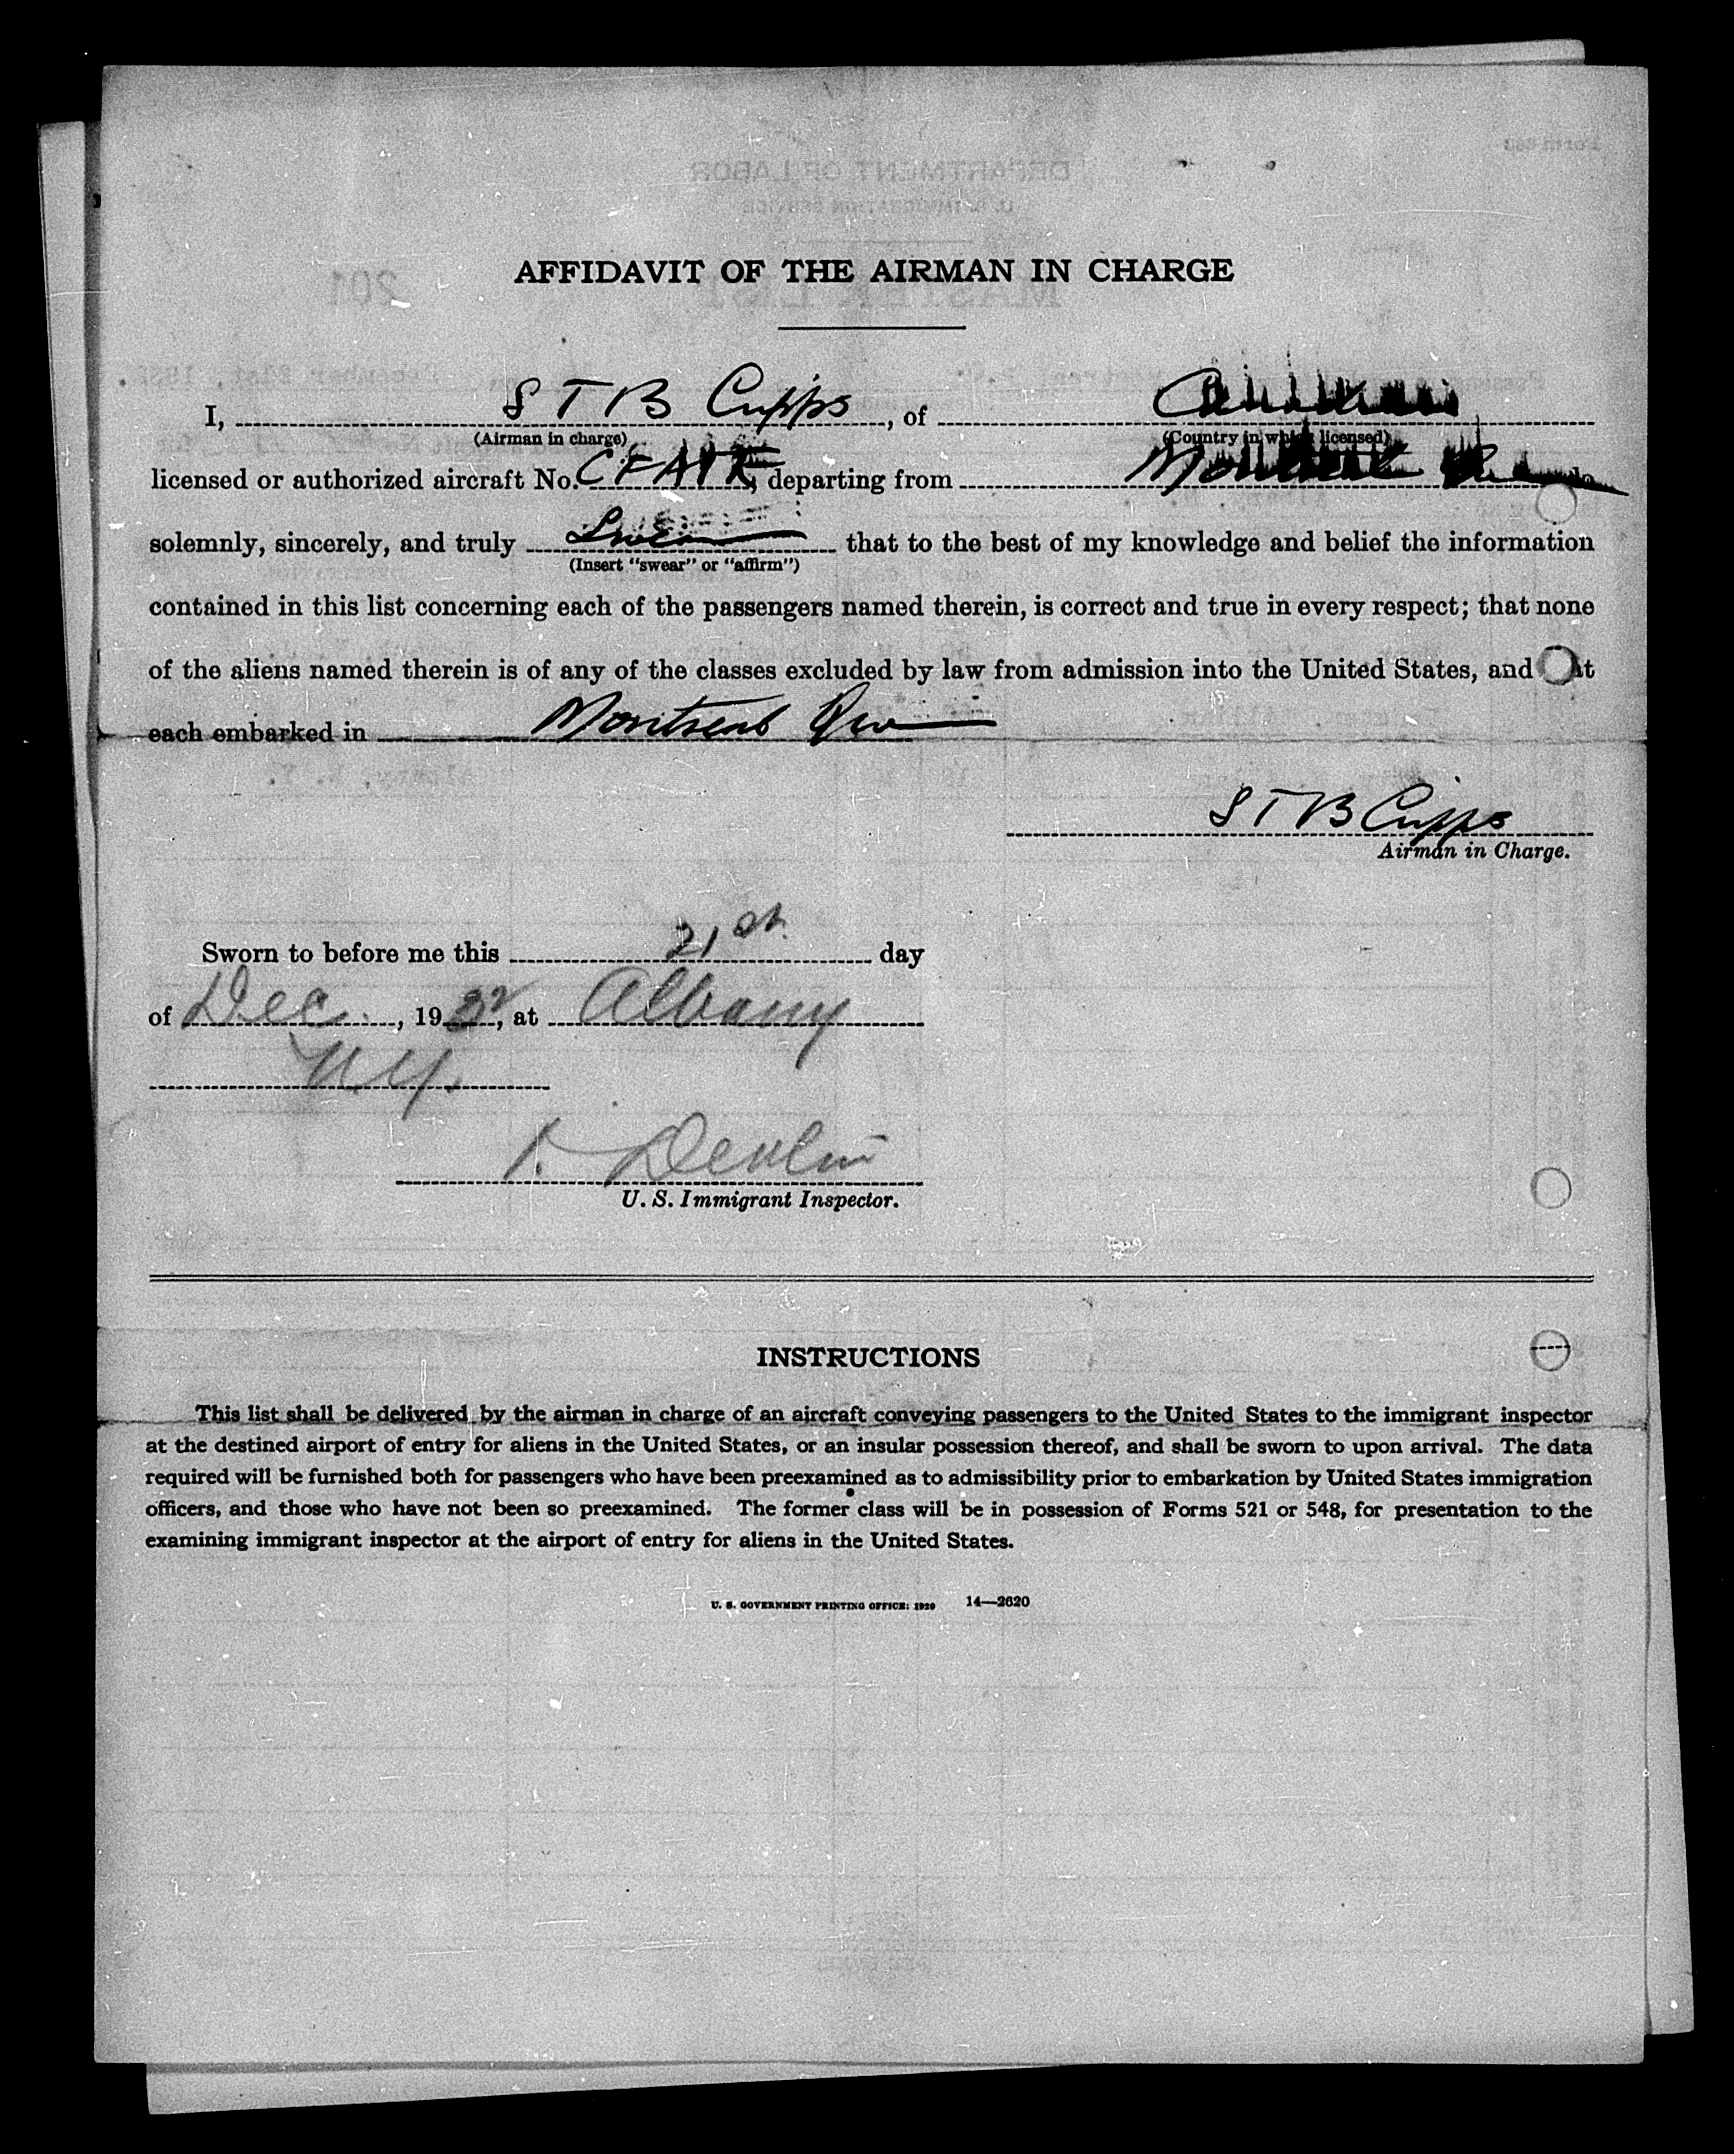 AFFIDAVIT OF THE AIRMAN IN CHARGE
I, S T B Cupps, of
(Airman in charge) (Country in which licensed)
licensed or authorized aircraft No. , departing from Montreal do
solemnly, sincerely, and truly that to the best of my knowledge and belief the information
(Insert "swear" or "affirm")
contained in this list concerning each of the passengers named therein, is correct and true in every respect; that none
of the aliens named therein is of any of the classes excluded by law from admission into the United States, and that
each embarked in Montreal Que
S T B Cupps
Airman in Charge.
Sworn to before me this 21st day
of Dec., 1932, at Albany
N.Y.
Devlin
U. S. Immigrant Inspector.
INSTRUCTIONS
This list shall be delivered by the airman in charge of an aircraft conveying passengers to the United States to the immigrant inspector
at the destined airport of entry for aliens in the United States, or an insular possession thereof, and shall be sworn to upon arrival. The data
required will be furnished both for passengers who have been preexamined as to admissibility prior to embarkation by United States immigration
officers, and those who have not been so preexamined. The former class will be in possession of Forms 521 or 548, for presentation to the
examining immigrant inspector at the airport of entry for aliens in the United States.
U. S. GOVERNMENT PRINTING OFFICE: 1929 14—2620